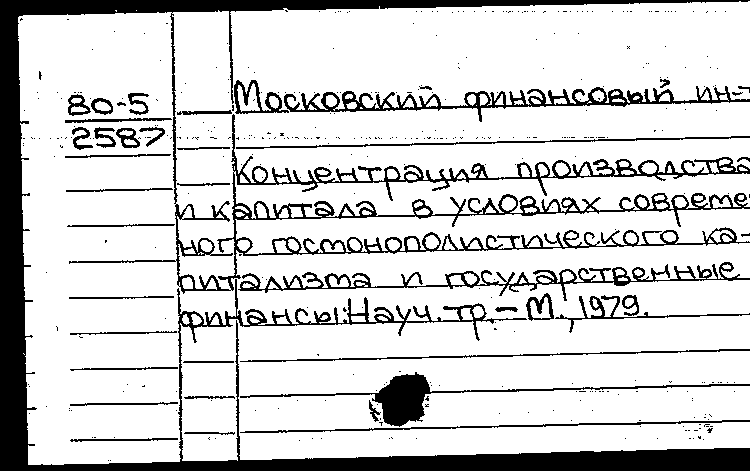 80-5
2587
Московский финансовый ин-т
Концентрация производства
и капитала в условиях совреме
ного госмонополистического ка-
питализма и государственные
финансы:Науч.тр.-М.,1979.